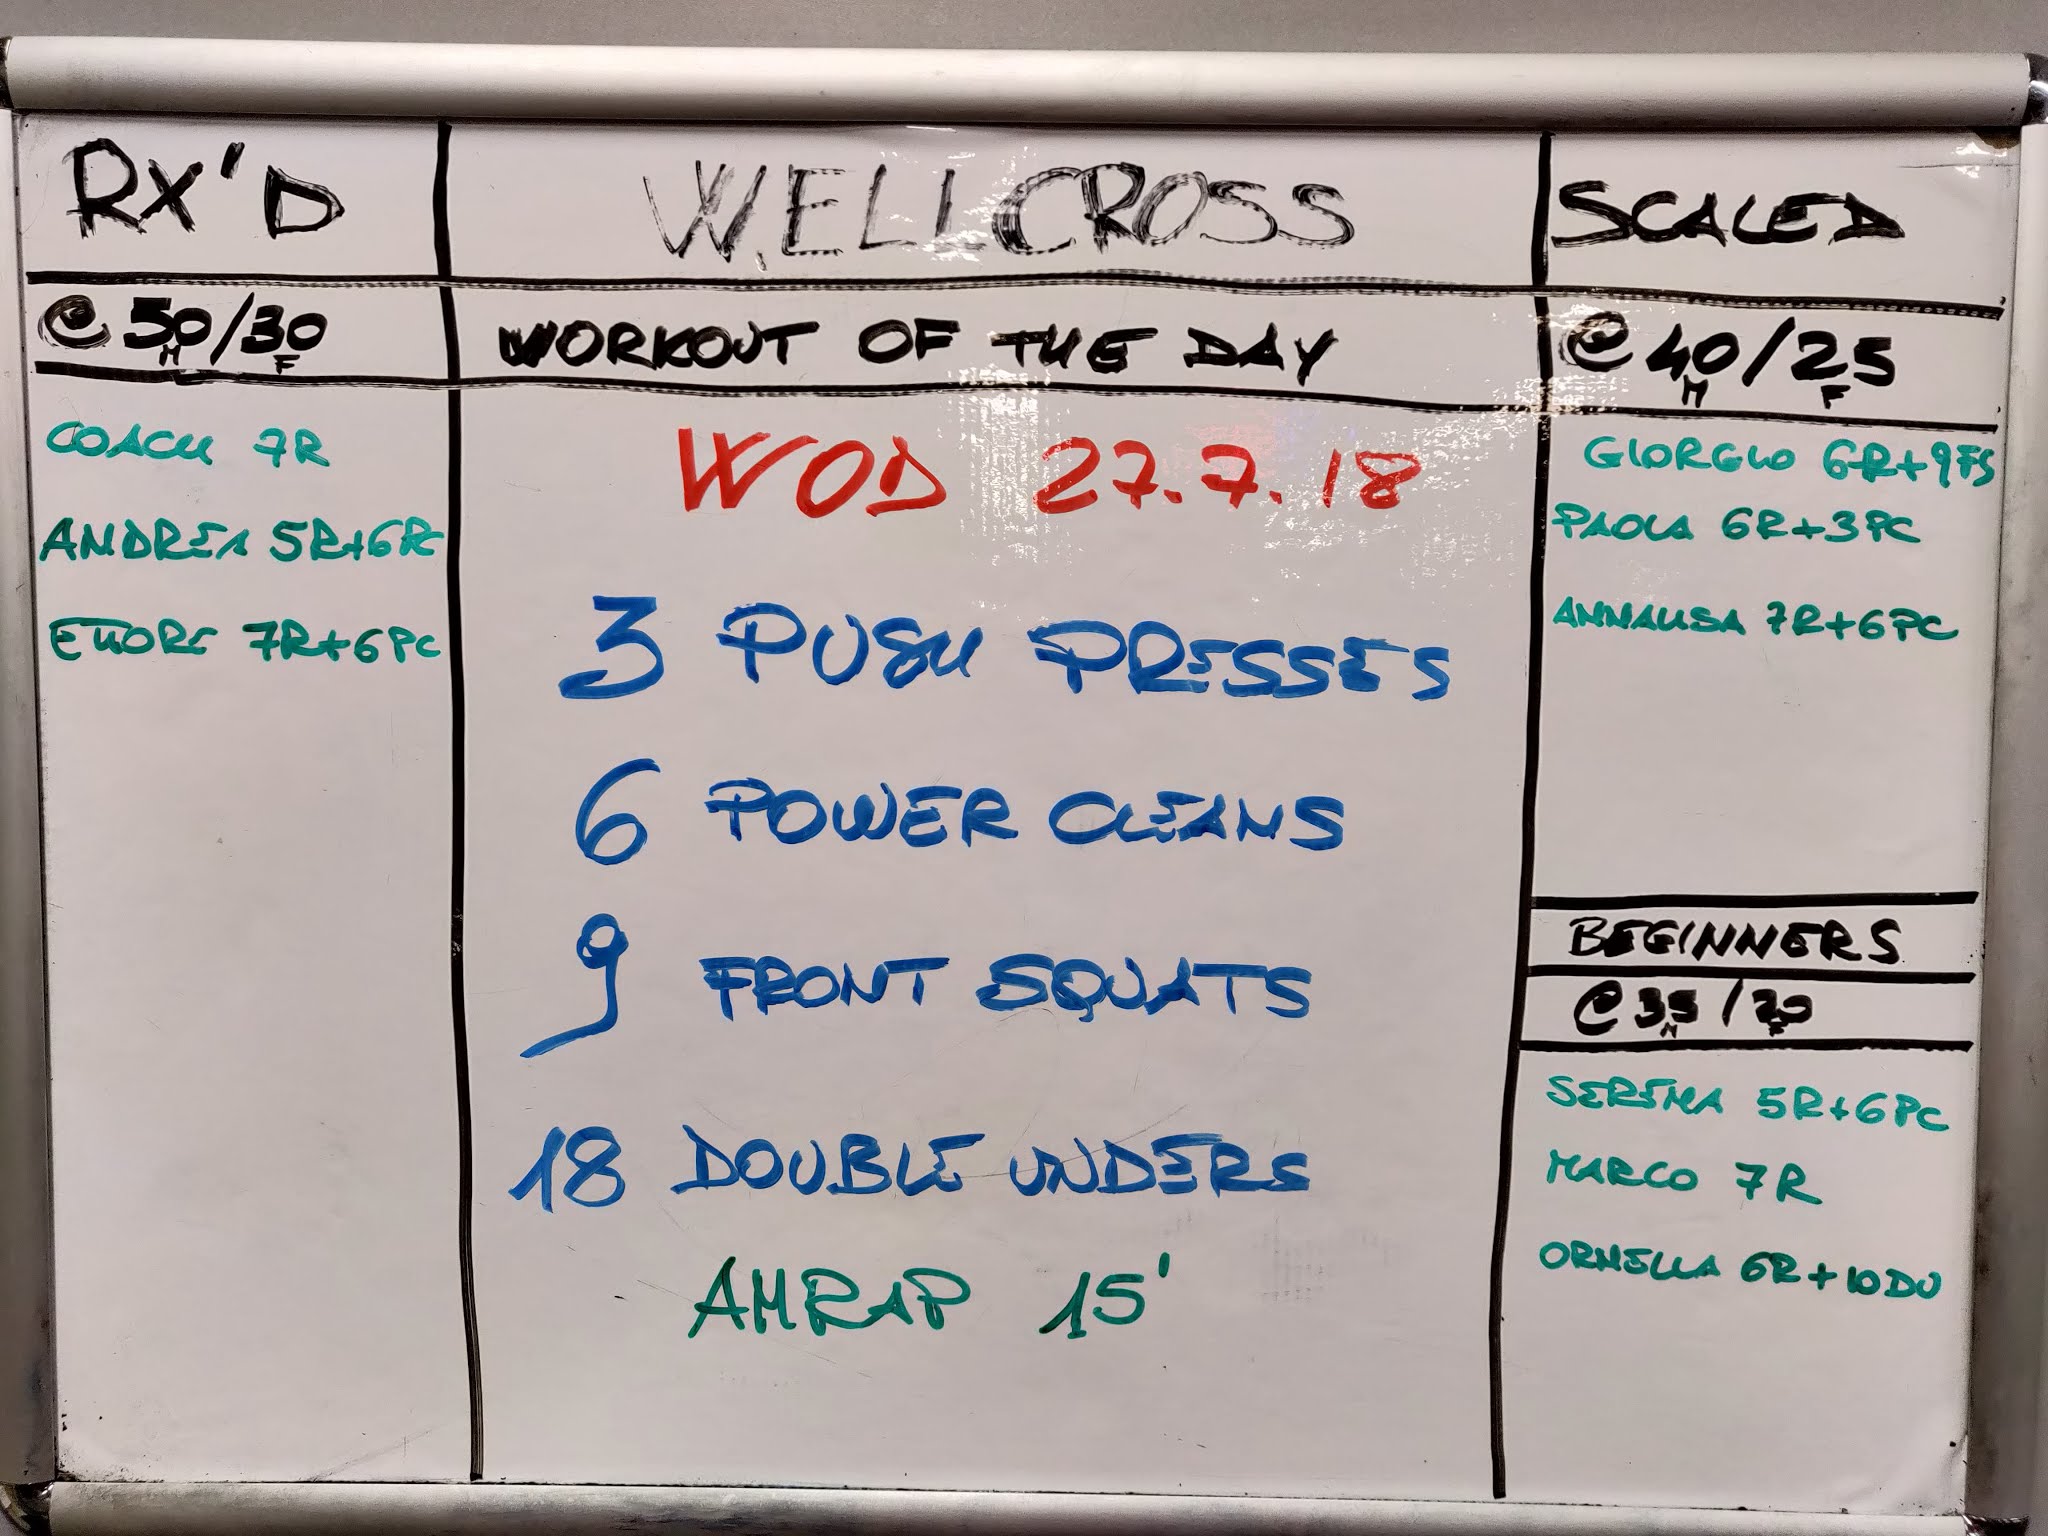 RX'D
@50/30
M F
COACH 7R
ANDREA 5R+6PC
ETTORE 7R+6PC
WELLCROSS
WORKOUT OF THE DAY
WOD 27.7.18
3 PUSH PRESSES
6 POWER CLEANS
9 FRONT SQUATS
18 DOUBLE UNDERS
AMRAP 15'
SCALED
@40/25
M F
GIORGIO 6R+9FS
PAOLA 6R+3PC
ANNALISA 7R+6PC
BEGINNERS
@35/20
M F
SERENA 5R+6PC
MARCO 7R
ORNELLA 6R+10DU